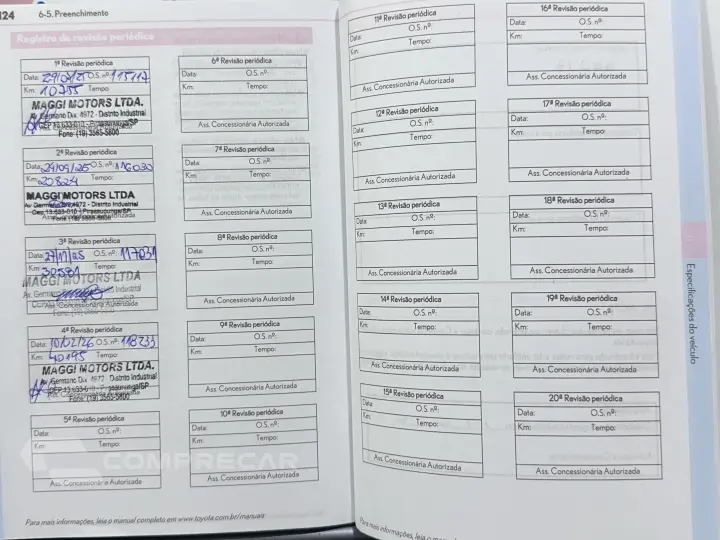 124 6-5. Preenchimento
Registro de revisão periódica
1ª Revisão periódica
Data: O.S. nº: 115117
Km: 10755 Tempo:
MAGGI MOTORS LTDA.
Av. Germano Dix. 4972 - Distrito Industrial
CEP 13.633-010 - Pirassununga/SP
Fone: (19) 3565-5800
2ª Revisão periódica
Data: 24/09/25 O.S. nº: 116030
Km: 20824 Tempo:
MAGGI MOTORS LTDA
Av. Germano Dix, 4972 - Distrito Industrial
Cep 13.633-010 - Pirassununga/SP
3ª Revisão periódica
Data: 27/11/25 O.S. nº: 117031
Km: 30581 Tempo:
MAGGI MOTORS LTDA
Av. Germano Industrial
Ass. Concessionária Autorizada
4ª Revisão periódica
Data: 10/02/26 O.S. nº: 118233
Km: 40195 Tempo:
MAGGI MOTORS LTDA.
Av. Germano Dix. 4972 - Distrito Industrial
CEP 13.633-010 - Pirassununga/SP
Fone: (19) 3565-5800
5ª Revisão periódica
Data: O.S. nº:
Km: Tempo:
Ass. Concessionária Autorizada
6ª Revisão periódica
Data: O.S. nº:
Km: Tempo:
Ass. Concessionária Autorizada
7ª Revisão periódica
Data: O.S. nº:
Km: Tempo:
Ass. Concessionária Autorizada
8ª Revisão periódica
Data: O.S. nº:
Km: Tempo:
Ass. Concessionária Autorizada
9ª Revisão periódica
Data: O.S. nº:
Km: Tempo:
Ass. Concessionária Autorizada
10ª Revisão periódica
Data: O.S. nº:
Km: Tempo:
Ass. Concessionária Autorizada
COMPRECAR
Para mais informações, leia o manual completo em www.toyota.com.br/manuais
11ª Revisão periódica
Data: O.S. nº:
Km: Tempo:
Ass. Concessionária Autorizada
12ª Revisão periódica
Data: O.S. nº:
Km: Tempo:
Ass. Concessionária Autorizada
13ª Revisão periódica
Data: O.S. nº:
Km: Tempo:
Ass. Concessionária Autorizada
14ª Revisão periódica
Data: O.S. nº:
Km: Tempo:
Ass. Concessionária Autorizada
15ª Revisão periódica
Data: O.S. nº:
Km: Tempo:
Ass. Concessionária Autorizada
16ª Revisão periódica
Data: O.S. nº:
Km: Tempo:
Ass. Concessionária Autorizada
17ª Revisão periódica
Data: O.S. nº:
Km: Tempo:
Ass. Concessionária Autorizada
18ª Revisão periódica
Data: O.S. nº:
Km: Tempo:
Ass. Concessionária Autorizada
19ª Revisão periódica
Data: O.S. nº:
Km: Tempo:
Ass. Concessionária Autorizada
20ª Revisão periódica
Data: O.S. nº:
Km: Tempo:
Ass. Concessionária Autorizada
Para mais informações, leia o manual
Especificações do veículo